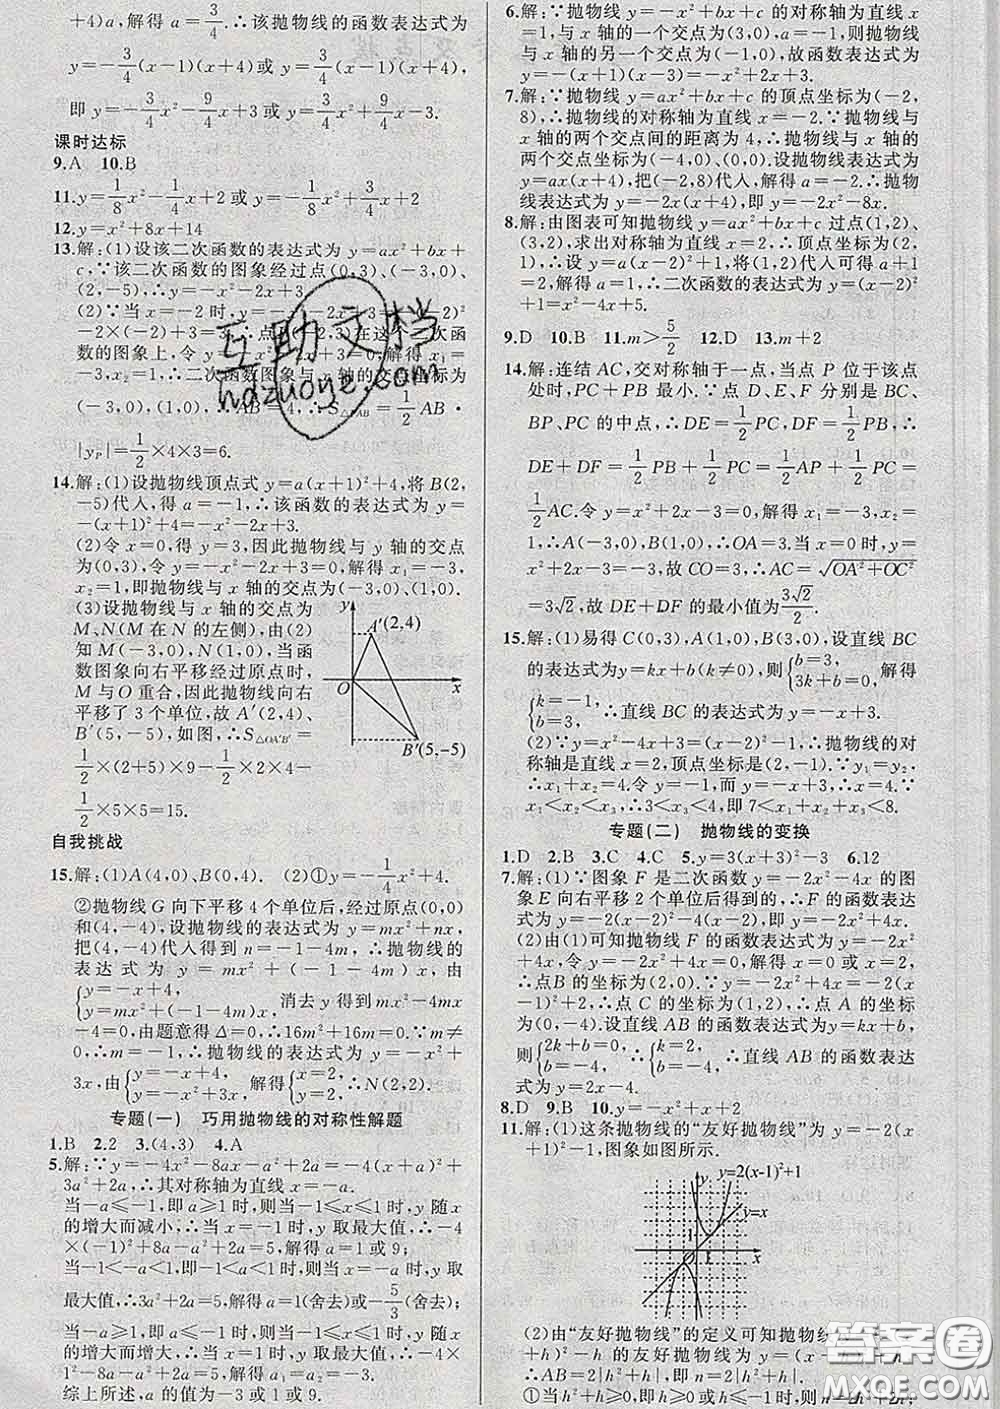 +4)a,解得 a=3/4.∴该抛物线的函数表达式为
y=-3/4(x-1)(x+4)或 y=3/4(x-1)(x+4),
即 y=-3/4x²-9/4x+3 或 y=3/4x²+9/4x-3.
课时达标
9.A 10.B
11.y=1/8x²-1/4x+2 或 y=-1/8x²+3/4x+2
12.y=x²+8x+14
13.解:(1)设该二次函数的表达式为 y=ax²+bx+
c,∵该二次函数的图象经过点(0,3)、(-3,0)、
(2,-5),∴y=-x²-2x+3.
(2)∵当 x=-2 时,y=-(-2)²-
2×(-2)+3=3,∴点P(-2,3)在这个二次函
数的图象上,令 -x²-2x+3=0,解得 x₁=
-3,x₂=1,∴二次函数图象与 x 轴的交点坐标为
(-3,0),(1,0),∴AB=4,∴S△PAB=1/2AB·
|yP|=1/2×4×3=6.
14.解:(1)设抛物线顶点式 y=a(x+1)²+4,将 B(2,
-5)代入,得 a=-1,∴该函数的表达式为 y=
-(x+1)²+4=-x²-2x+3.
(2)令 x=0,得 y=3,因此抛物线与 y 轴的交点
为(0,3),令 y=-x²-2x+3=0,解得 x₁=-3,
x₂=1,即抛物线与 x 轴的交点为(-3,0),(1,0).
(3)设抛物线与 x 轴的交点为
M、N(M 在 N 的左侧),由(2)
知 M(-3,0),N(1,0),当
函数图象向右平移经过原点时,
M 与 O 重合,因此抛物线向右
平移了 3 个单位,故 A′(2,4)、
B′(5,-5),如图,∴S△OA′B′=
1/2×(2+5)×9-1/2×2×4-
1/2×5×5=15.
y
A′(2,4)
O
x
B′(5,-5)
自我挑战
15.解:(1)A(4,0)、B(0,4). (2)①y=-1/4x²+4.
②抛物线 G 向下平移 4 个单位后,经过原点(0,0)
和(4,-4),设抛物线的表达式为 y=mx²+nx,
把(4,-4)代入得到 n=-1-4m,∴抛物线的
表达式为 y=mx²+(-1-4m)x,由
{y=-x+4, y=mx²+(-1-4m)x, 消去 y 得到 mx²-4mx
-4=0,由题意得 Δ=0,∴16m²+16m=0.∵m≠
0,∴m=-1,∴抛物线的表达式为 y=-x²+
3x,由{y=-x+4, y=-x²+3x, 解得{x=2, y=2, ∴N(2,2).
专题(一) 巧用抛物线的对称性解题
1.B 2.2 3.(4,3) 4.A
5.解:∵y=-4x²-8ax-a²+2a=-4(x+a)²+
3a²+2a,∴其对称轴为直线x=-a.
当-a≤-1,即a≥1时,则当-1≤x≤1时,y随x
的增大而减小,∴当 x=-1 时,y 取最大值,∴-4
×(-1)²+8a-a²+2a=5,解得 a=1 或 9;
当-1<-a<1,即-1<a<1时,则当x=-a时,y取
最大值,∴3a²+2a=5,解得a=1(舍去)或-5/3(舍去);
当-a≥1,即a≤-1时,则当-1≤x≤1时,y 随 x
的增大而增大,∴当 x=1 时,y 取最大值,∴-4
×1²-8a-a²+2a=5,解得 a=-5(舍去)或-3.
综上所述,a 的值为-3 或 1 或 9.
6.解:∵抛物线 y=-x²+bx+c 的对称轴为直线 x
=1,与 x 轴的一个交点为(3,0),∴则抛物线与 x
轴的另一个交点为(-1,0),∴a=-1,故函数表达
式为y=-(x+1)(x-3)=-x²+2x+3.
7.解:∵抛物线 y=ax²+bx+c 的顶点坐标为(-2,
8),∴抛物线的对称轴为直线 x=-2.∵抛物线与 x
轴的两个交点间的距离为 4,∴抛物线与 x 轴的
两个交点坐标为(-4,0)、(0,0).设抛物线表达式为
y=ax(x+4),把(-2,8)代入,解得 a=-2.∴抛物
线表达式为 y=-2x(x+4),即 y=-2x²-8x.
8.解:由图表可知抛物线 y=ax²+bx+c 过点(1,2)、
(3,2),求出对称轴为直线 x=2,∴顶点坐标为(2,
1),设 y=a(x-2)²+1,将(1,2)代入可得 2=a(1
-2)²+1,解得 a=1,∴二次函数表达式为 y=(x-2)²
+1=x²-4x+5.
9.D 10.B 11.m>5/2 12.D 13.m+2
14.解:连结 AC,交对称轴于一点,当点 P 位于该点
处时,PC+PB 最小.∵点 D、E、F 分别是 BC、
BP、PC 的中点,∴DE=1/2PC,DF=1/2PB,∴
DE+DF=1/2PB+1/2PC=1/2AP+1/2PC=
1/2AC.令 y=x²+2x-3=0,解得 x₁=-3,x₂=
1,∴A(-3,0),B(1,0),∴OA=3.当 x=0 时,y=
x²+2x-3=-3,故 CO=3,∴AC=√OA²+OC²
=3√2,故 DE+DF 的最小值为3√2/2.
15.解:(1)易得 C(0,3),A(1,0),B(3,0),设直线 BC
的表达式为y=kx+b(k≠0),则{b=3, 3k+b=0, 解得
{k=-1, b=3, ∴直线 BC 的表达式为 y=-x+3.
(2)∵y=x²-4x+3=(x-2)²-1,∴抛物线的对
称轴是直线 x=2,顶点坐标为(2,-1).∵y₁=y₂,
∴x₁+x₂=4.令 y=-1,而 y=-x+3,∴x=4.∵
x₁<x₂<x₃,∴3<x₃<4,即 7<x₁+x₂+x₃<8.
专题(二) 抛物线的变换
1.D 2.B 3.C 4.C 5.y=3(x+3)²-3 6.12
7.解:(1)∵图象 F 是二次函数 y=-2x²-4x 的图
象 E 向右平移 2 个单位后得到的,∴F 的函数表达
式为 y=-2(x-2)²-4(x-2),即 y=-2x²+4x.
(2)由(1)可知抛物线 F 的函数表达式为 y=-2x²
+4x,令 y=0,得-2x²+4x=0,解得 x=0 或 x=2,
∴点B 的坐标为(2,0).∵y=-2x²+4x=-2(x
-1)²+2,∴点 C 的坐标为(1,2),∴点 A 的坐标
为(0,-4).设直线 AB 的函数表达式为 y=kx+b,
则{2k+b=0, b=-4, ∴{k=2, b=-4, ∴直线 AB 的函数表达
式为 y=2x-4.
8.D 9.B 10.y=-x²+x+2
11.解:(1)这条抛物线的“友好抛物线”为 y=-2(x
+1)²-1,图象如图所示.
y
y=2(x-1)²+1
y=x
x
(2)由“友好抛物线”的定义可知抛物线
+h)²-h 的友好抛物线为
①当 h²+h≥0,即 h≥0 或 h≤-1 时,则
互助文档
hdzuoye.com
答案圈
MXQE.COM